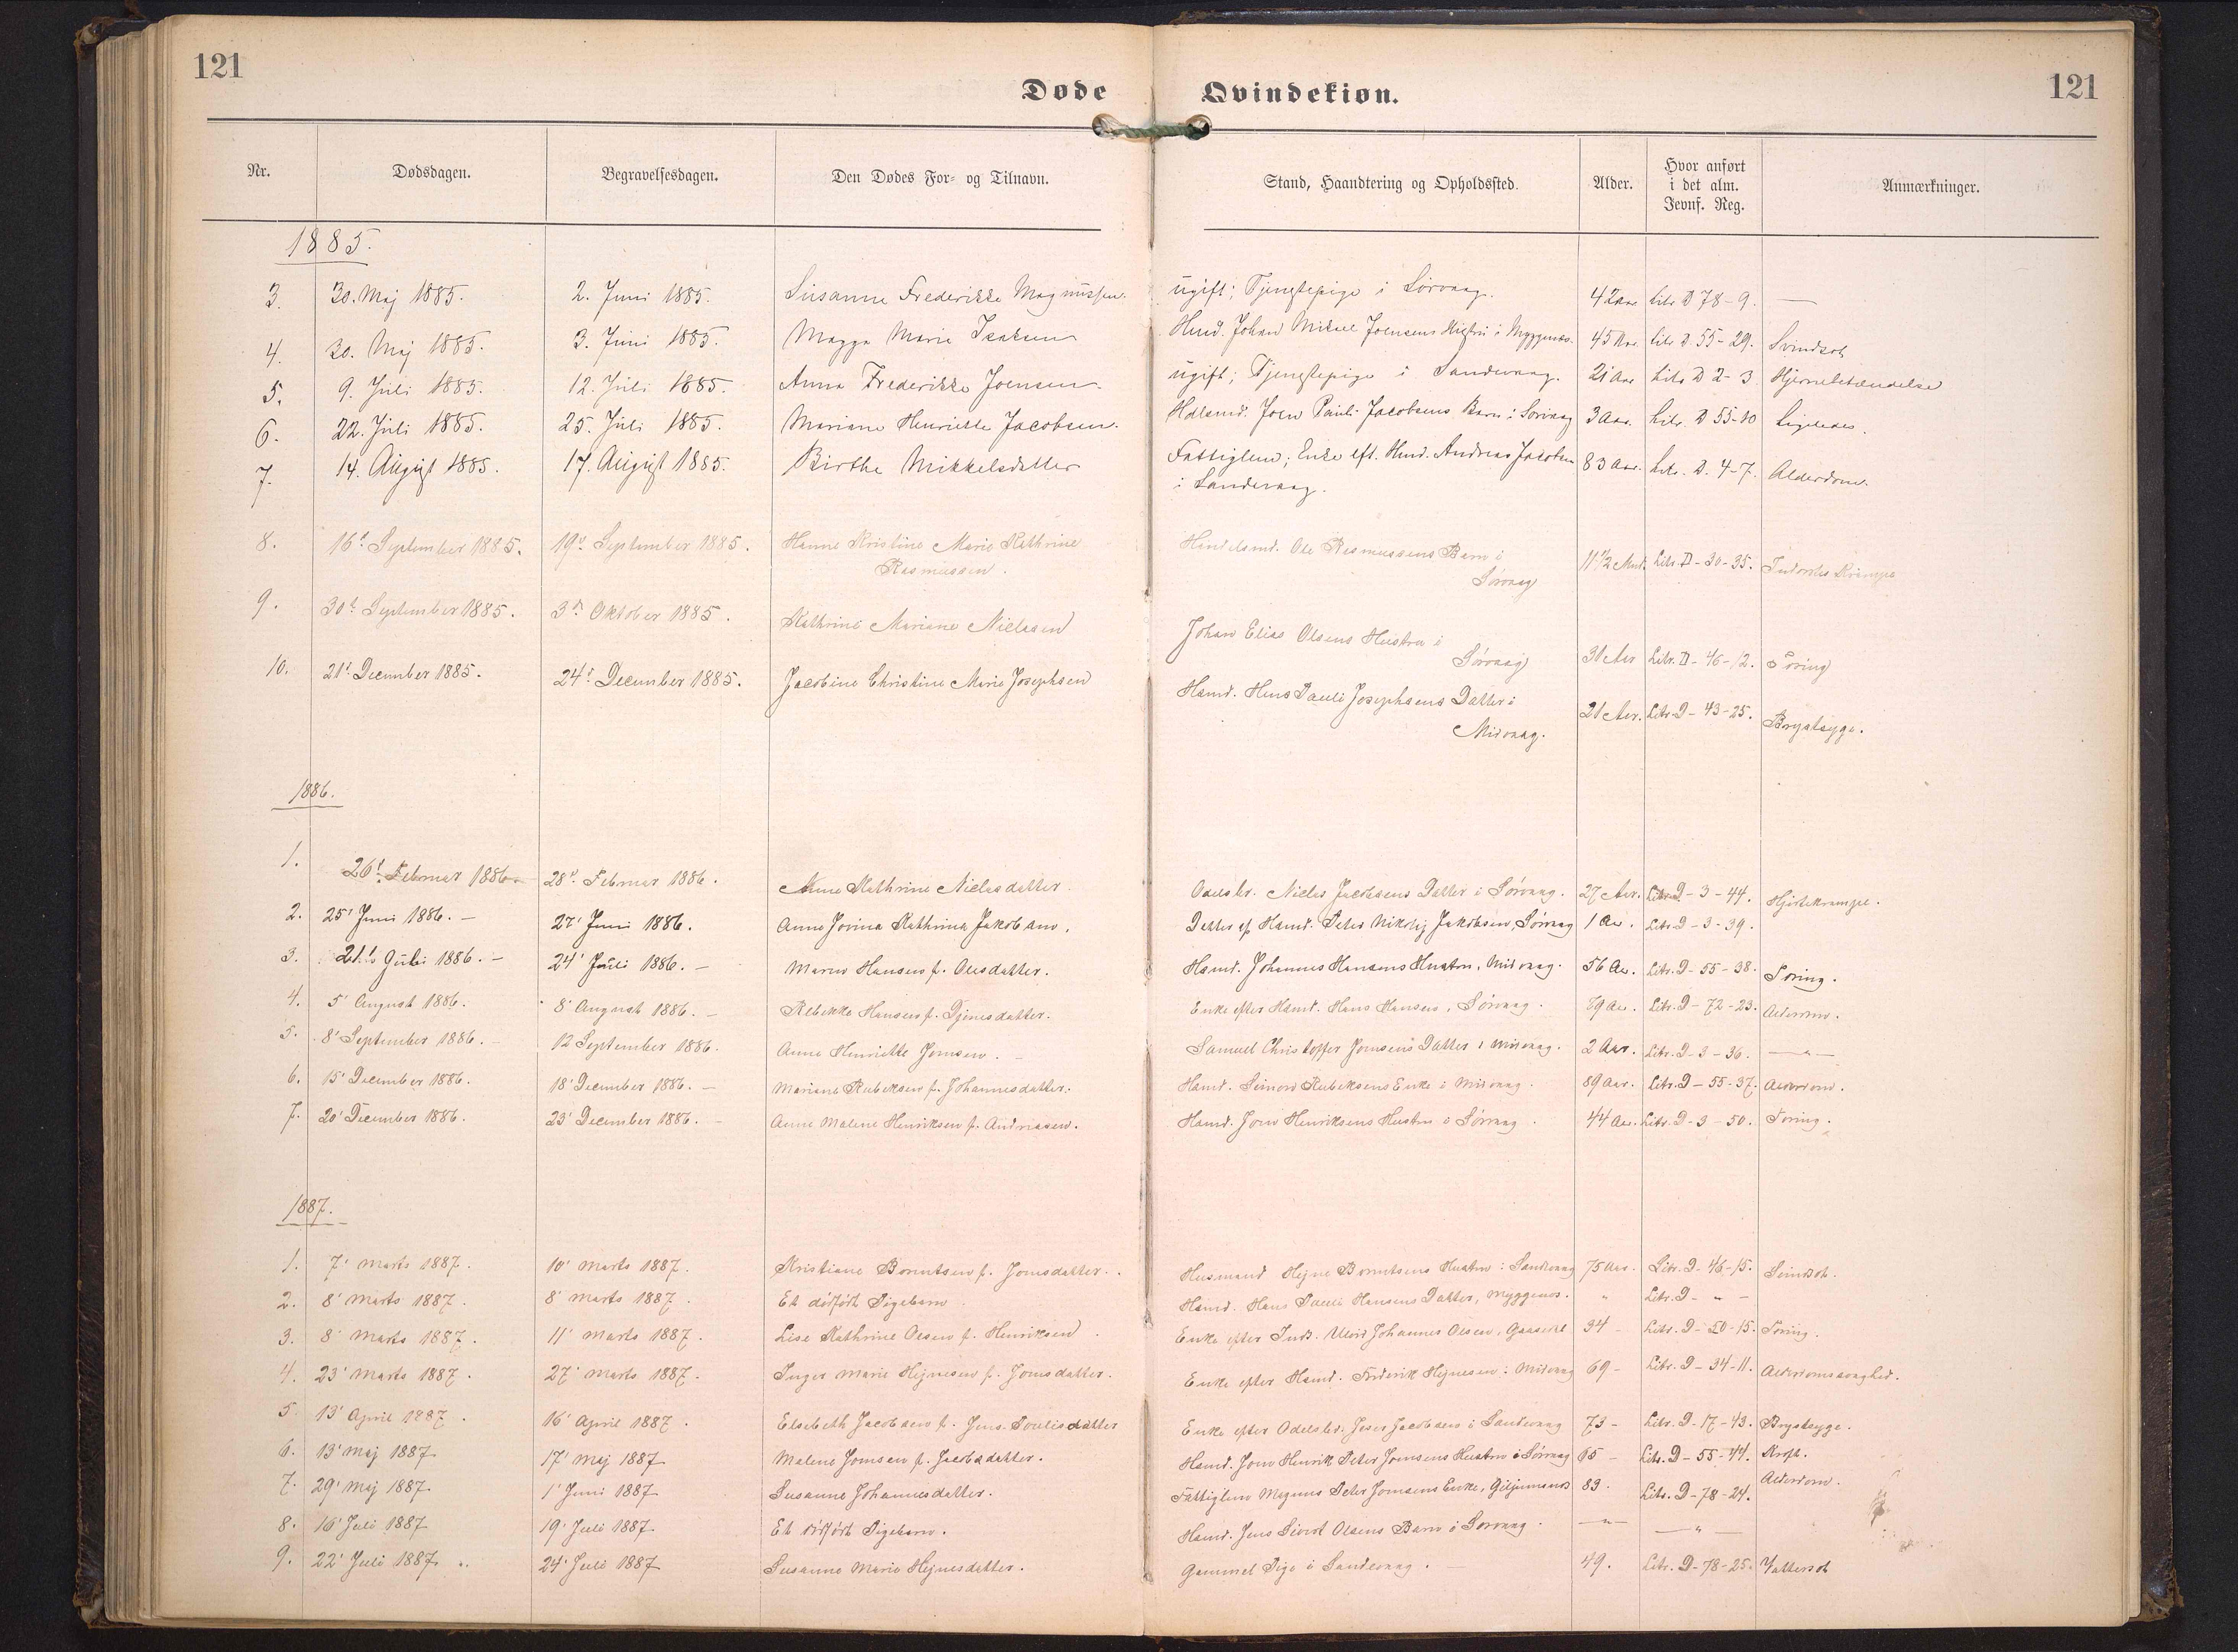 121
121
Døde Qvindekiøn.
Nr. Dødsdagen. Begravelsesdagen. Den Dødes For- og Tilnavn. Stand, Haandtering og Opholdssted. Alder. Hvor anført i det alm. Jevnf. Reg. Anmærkninger.
1885.
3. 30. Maj 1885. 2. Juni 1885. Susanne Frederikke Magnussen. ugift; Tjenestepige i Sörvaag. 42 Aar Litr. D 78-9. —
4. 30. Maj 1885. 3. Juni 1885. Magga Marie Isaksen Hmd. Johan Mikael Joensens Hustru i Myggenæs. 45 Aar. Litr. D. 55-29. Svindsot
5. 9. Juli 1885. 12. Juli 1885. Anna Frederikke Joensen ugift; Tjenestepige i Sandevaag. 21 Aar Litr. D 2-3 Hjernebetændelse
6. 22. Juli 1885. 25. Juli 1885. Mariane Henriette Jacobsen. Joen Pauli Jacobsens Barn i Sörvaag 3 Aar. Litr. D 55-10 Ligeledes.
7. 14. August 1885. 17. August 1885. Birthe Mikkelsdatter Fattiglem; Enke eft. Hmd. Andreas Jacobsen 83 Aar. Litr. D. 4-7. Alderdom.
i Sandevaag.
8. 16d September 1885. 19d September 1885. Hanne Kristine Marie Kathrine Handelsmd. Ole Rasmussens Barn i 11 1/2 Mnd. Litr. D-30-35. Indvortes Krampe
Rasmussen. Sörvaag
9. 30d September 1885. 3d Oktober 1885. Kathrine Mariane Niclasen Johan Elias Olsens Hustru i 31 Aar Litr. D-46-12. Tæring
Sörvaag
10. 21d December 1885. 24d December 1885. Jacobine Christine Marie Josephsen Hamd. Hans Pauli Josephsens Datter i 21 Aar. Litr. D-43-25. Brystsyge.
Midvaag.
1886.
1. 26d Februar 1886. 28d Februar 1886. Anne Kathrine Niclasdatter. Odelsbr. Niclas Jacobsens Datter i Sörvaag. 27 Aar. Litr. D-3-44. Hjertekrampe.
2. 25' Juni 1886. — 27' Juni 1886. Anne Jovina Kathrina Jakobsen. Datter af Hamd. Peter Nikolaj Jakobsen, Sörvaag 1 Aar. Litr. D-3-39.
3. 21' Juli 1886. — 24' Juli 1886. — Maren Hansen f. Olesdatter. Hamd. Johannes Hansens Hustru, Midvaag. 56 Aar. Litr. D-55-38. Tæring.
4. 5' August 1886. 8' August 1886. — Rebekka Hansen f. Enke efter Hamd. Hans Hansen, Sörvaag. 89 Aar. Litr. D-72-23. Alderdom.
5. 8' September 1886. — 12 September 1886. Anne Henriette Joensen. — Samuel Christoffer Joensens Datter i Midvaag. 2 Aar. Litr. D-3-36. —"—
6. 15' December 1886. 18' December 1886. — Mariane Rubeksen f. Johannesdatter. Hamd. Rubeksens Enke i Midvaag. 89 Aar. Litr. D-55-37. Alderdom.
7. 20' December 1886. 23' December 1886. — Anne Malene Henriksen f. Andreasen. Hamd. Joen Henriksens Hustru i Sörvaag. 44 Aar. Litr. D-3-50. Tæring.
1887.
1. 7' Marts 1887. 10' Marts 1887. Kristiane f. Joensdatter. Husmand Hejne Hustru i Sandevaag 75 Aar. Litr. D-46-15. Svindsot.
2. 8' Marts 1887. 8' Marts 1887. Et dödfödt Pigebarn. Hamd. Hans Pauli Hansens Datter, Myggenæs. " Litr. D- " -
3. 8' Marts 1887. 11' Marts 1887. Lise Kathrine Olsen f. Henriksen. Enke efter Johannes Olsen, Gaasedal 34 Litr. D-50-15. Tæring.
4. 23' Marts 1887. 27' Marts 1887. Inger Marie Hejnesen f. Joensdatter. Enke efter Hamd. Frederik Hejnesen i Midvaag 69 - Litr. D-34-11. Alderdomssvaghed.
5. 13' April 1887. 16' April 1887. Elsebeth Jacobsen f. Jens-Poulisdatter Enke efter Odelsbr. Jacobsen i Sandevaag 73 - Litr. D-17-43. Brystsyge.
6. 13' Maj 1887 17' Maj 1887 Malene Joensen f. Jacobsdatter. Hamd. Joen Henrik Peter Joensens Hustru i Sörvaag 65 - Litr. D-55-44. Kræft.
7. 29' Maj 1887. 1' Juni 1887 Susanne Johannesdatter. Fattiglem Magnus Peter Joensens Enke, 83. Litr. D-78-24. Alderdom.
8. 16' Juli 1887 19' Juli 1887 Et dödfödt Pigebarn. Hamd. Jens Sivert Olsens Barn i Sörvaag. —"— —"—
9. 22' Juli 1887. 24' Juli 1887 Susanne Marie Hejnesdatter. Gammel Pige i Sandevaag. 49. Litr. D-78-25. Vattersot